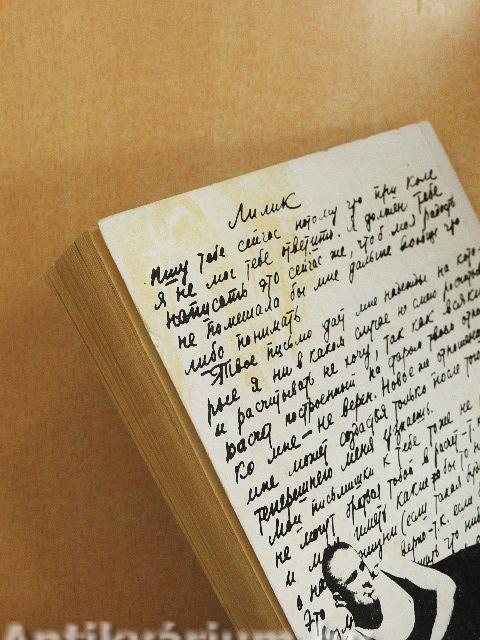 Лилик
Пишу тебе сейчас потому что при Коле
я не мог тебе ответить. Я должен тебе
написать это сейчас же, чтоб моя радость
не помешала бы мне дальше вообще что
либо понимать.
Твое письмо даёт мне надежды на кото-
рые я ни в каком случае не смею рассчитывать
и рассчитывать не хочу, так как всякий
расчет построенный на старом твоем отнош
ко мне — не верен. Новое же отношение
мне может создаться только после того
теперешнего меня узнаешь.
Мои письмишки к тебе тоже не
не могут браться тобой в расчет - т.
и могу иметь какие бы то н
в на жизни (если такая бу
верно т.к. если
что ниб
Это
Antikvárium